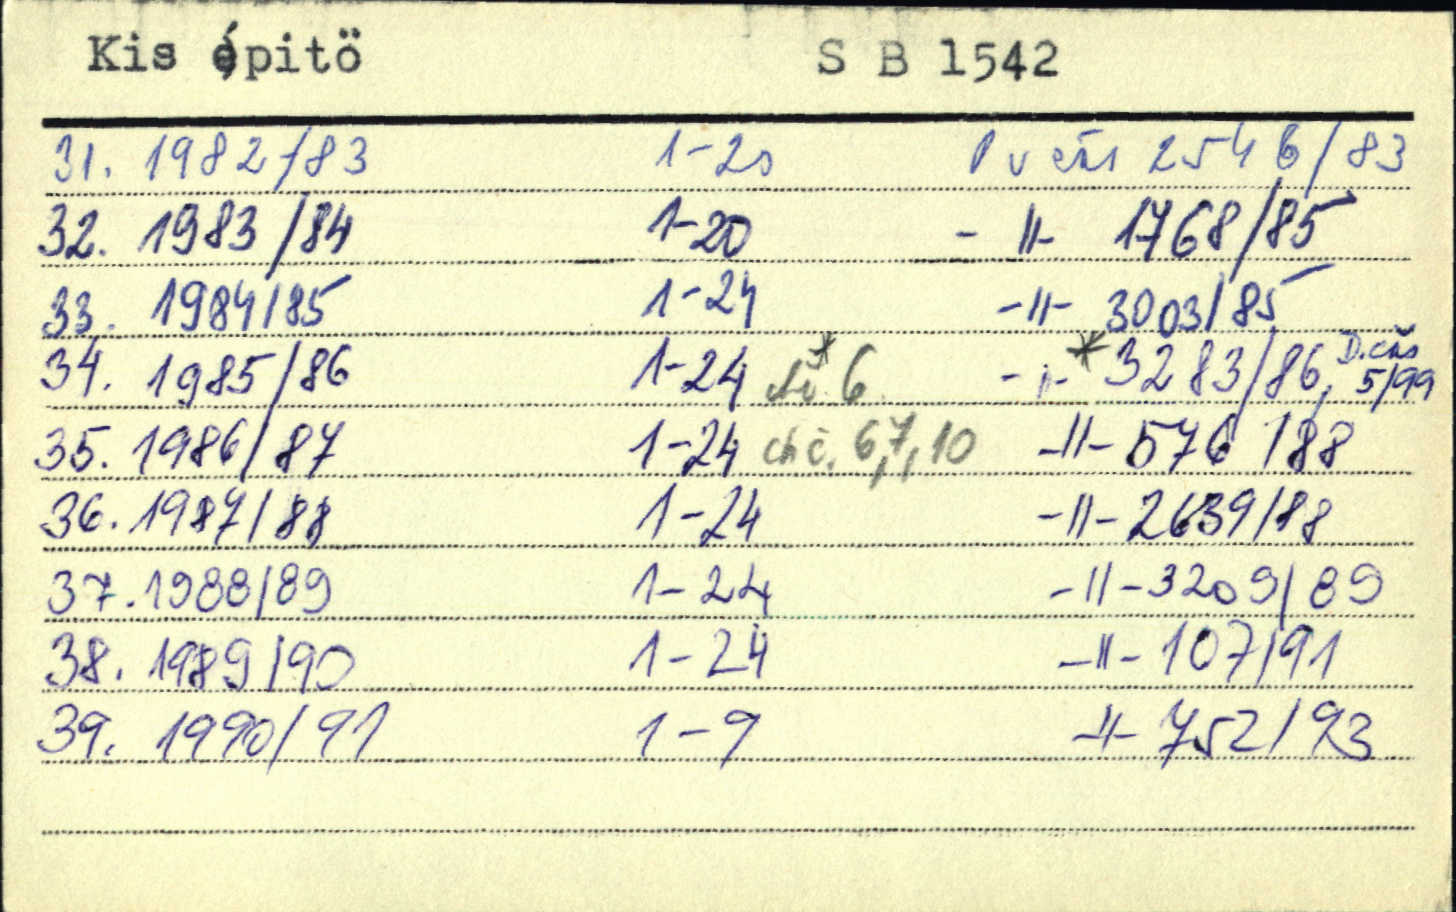 Kis épitö S B 1542
31. 1982/83 1-20 P v čas 2546/83
32. 1983/84 1-20 -11- 1768/85
33. 1984/85 1-24 -11- 3003/85
34. 1985/86 1-24 * 6 -11- * 3283/86, D. čas 5/99
35. 1986/87 1-24 chč. 6,7,10 -11- 576/88
36. 1987/88 1-24 -11- 2639/88
37. 1988/89 1-24 -11- 3209/89
38. 1989/90 1-24 -11- 107/91
39. 1990/91 1-9 -11- 752/93